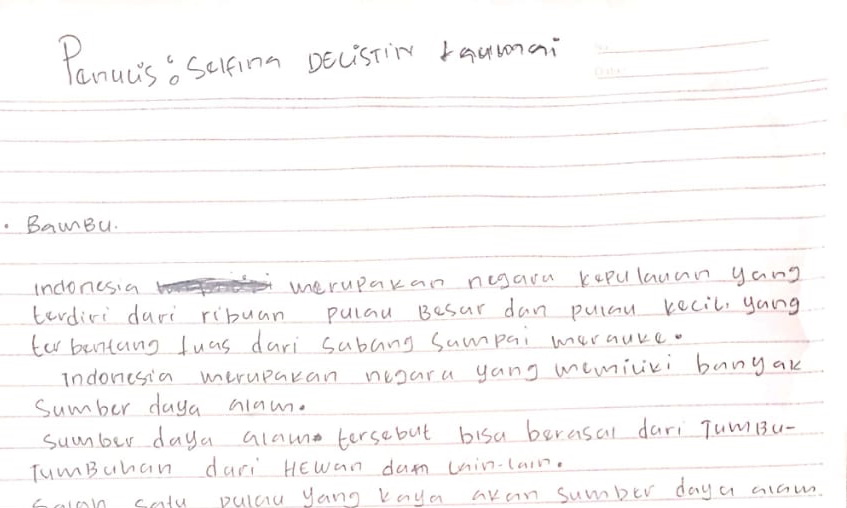 Panulis : Selfina DECISTIN taumai
No
Date
. BamBu.
indonesia merupakan negara kepulauan yang
terdiri dari ribuan pulau Besar dan pulau kecil. yang
terbentang luas dari sabang sampai merauke.
indonesia merupakan negara yang memiliki banyak
Sumber daya alam.
Sumber daya alam tersebut bisa berasal dari TumBu-
TumBuhan dari HEWan dam lain-lain.
Salah satu pulau yang kaya akan sumber daya alam.